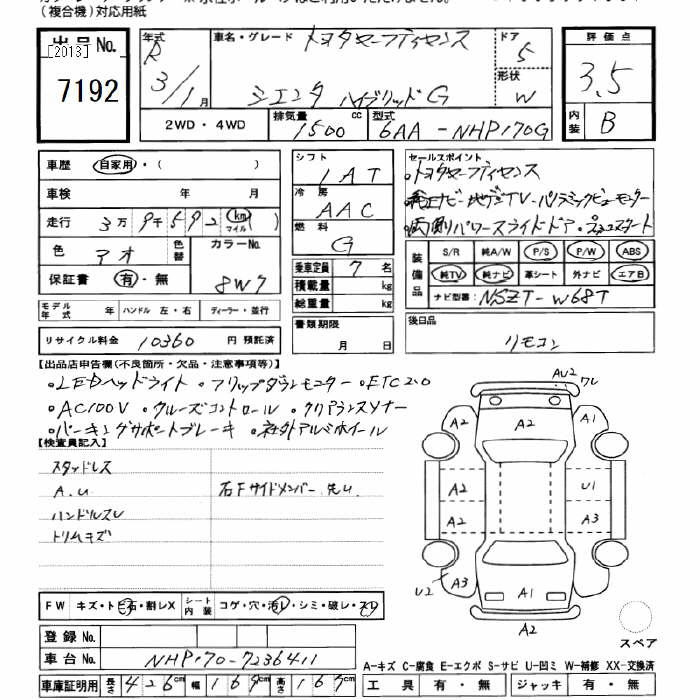 (複合機)対応用紙
出品No.
[2013]
7192
年式 R 3/1月
車名・グレード トヨタセーフティセンス
シエンタ ハイブリッドG
ドア 5
形状 W
評価点
3.5
内装 B
2WD・4WD
排気量 1500 cc
型式 6AA-NHP170G
車歴 自家用・( )
車検 年 月
走行 3万9千592 (km マイル)
色 アオ
色替
カラーNo. 8W7
保証書 有・無
モデル年式 年 ハンドル 左・右 ディーラー・並行
リサイクル料金 10360 円 預託済
シフト 1AT
冷房 AAC
燃料 G
乗車定員 7名
積載量 kg
総重量 kg
書類期限 月 日
セールスポイント
・トヨタセーフティセンス
・純正ナビ・地デジTV・パノラミックビューモニター
・両側パワースライドドア・プッシュスタート
装備品
S/R 純A/W P/S P/W ABS
純TV 純ナビ 革シート 外ナビ エアB
ナビ型番: NSZT-W68T
後日品
リモコン
【出品店申告欄(不良箇所・欠品・注意事項等)】
・LEDヘッドライト ・フリップダウンモニター ・ETC2.0
・AC100V ・クルーズコントロール ・クリアランスソナー
・パーキングサポートブレーキ ・社外アルミホイール
【検査員記入】
スタッドレス
A.U 右Fサイドメンバー 先U
ハンドルスレ
トリムキズ
AU2
フレ
A2
A2
A1
A2
U1
A2
A3
U2
A3
A1
A2
スペア
FW キズ・トビ石・割レX
シート内装 コゲ・穴・汚レ・シミ・破レ・スレ
登録No.
車台No. NHP170-7236411
車庫証明用 長さ 426cm 幅 169cm 高さ 167cm
A-キズ C-腐食 E-エクボ S-サビ U-凹ミ W-補修 XX-交換済
工具 有・無 ジャッキ 有・無